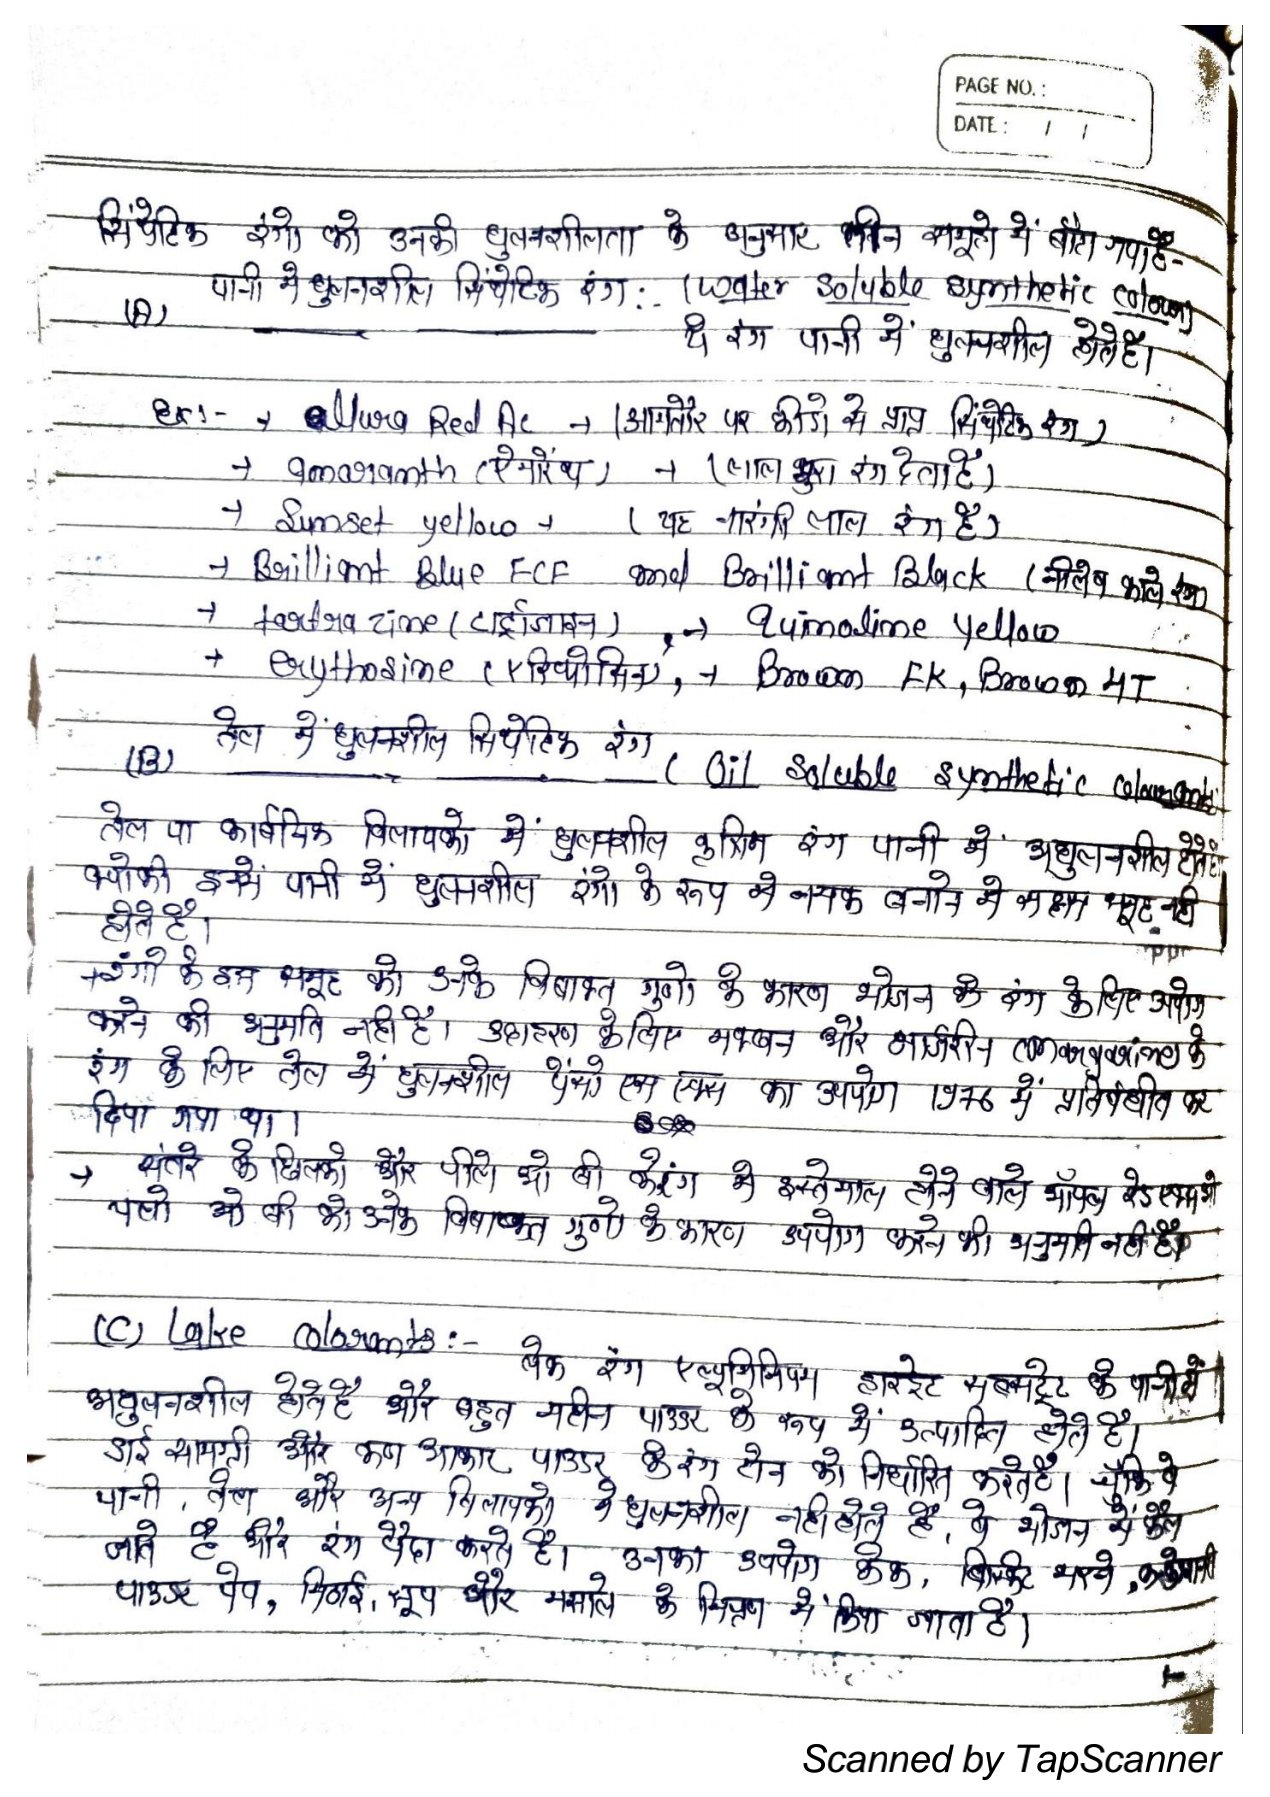 PAGE NO. :
DATE : / /
सिंथेटिक रंगो को उनकी घुलनशीलता के अनुसार तीन समूहो में बाँटा गया है-
(A) पानी मे घुलनशील सिंथेटिक रंग :- (Water Soluble Synthetic colours)
ये रंग पानी में घुलनशील होते है।
Ex:- → allura Red Ac → (आमतौर पर कीडो से प्राप्त सिंथेटिक रंग)
→ amaranth (ऐमारेंथ) → (लाल भूरा रंग देता है)
→ Sunset yellow → (यह नारंगी लाल रंग है)
→ Brilliant Blue FCF and Brilliant Black (नीले व काले रंग)
→ tartrazine (टार्ट्राजाइन), → Quinoline yellow
→ erythosine (एरिथ्रोसिन), → Brown FK, Brown HT
(B) तेल में घुलनशील सिंथेटिक रंग (Oil Soluble synthetic colourants)
तेल या कार्बनिक विलायको में घुलनशील कृत्रिम रंग पानी में अघुलनशील होते है
क्योकी इनमें पानी में घुलनशील रंगो के रूप मे नमक बनाने मे सक्षम समूह नही
होते है।
→ रंगो के इस समूह को उनके विषाक्त गुणो के कारण भोजन के रंग के लिए उपयोग
करने की अनुमति नही है। उदाहरण के लिए मक्खन और मार्जरीन (margarine) के
रंग के लिए तेल में घुलनशील पोंसो एस एक्स का उपयोग 1976 में प्रतिबंधीत कर
दिया गया था।
→ संतरे के छिलको और पीले ओ बी के रंग मे इस्तेमाल होने वाले ऑयल रेड एक्स ओ
यलो ओ बी को उनके विषाक्त गुणो के कारण उपयोग करने की अनुमति नही है।
(C) Lake colorants :- लेक रंग एल्यूमिनियम हाइड्रेट सब्सट्रेट के पानी में
अघुलनशील होते है और बहुत महीन पाउडर के रूप में उत्पादित होते है।
डाई सामग्री और कण आकार पाउडर के रंग टोन को निर्धारित करते है। चूँकि वे
पानी, तेल और अन्य विलायको मे घुलनशील नही होते है, वे भोजन में फैल
जाते है और रंग पैदा करते है। उनका उपयोग केक, बिस्कीट भरने,
पाउडर पेय, मिठाई, सूप और मसाले के मिश्रण में किया जाता है।
Scanned by TapScanner